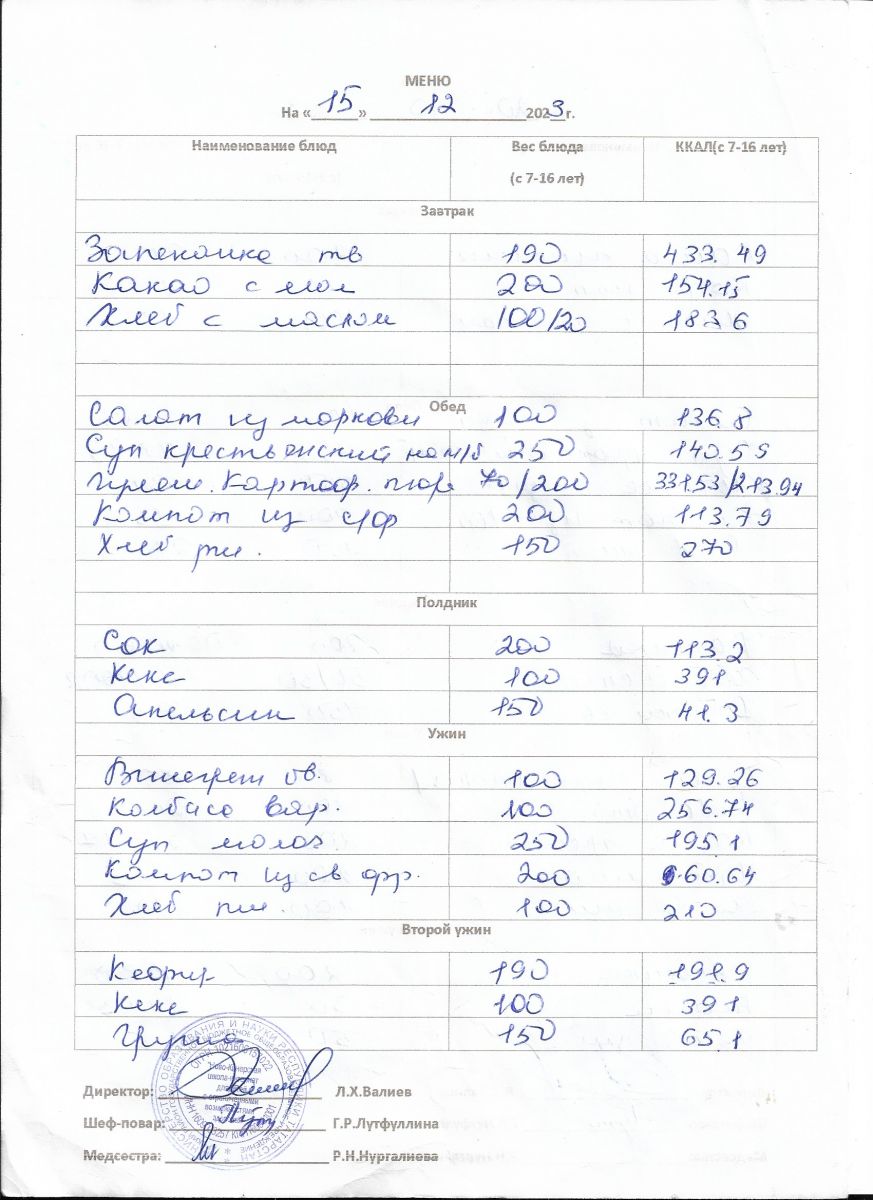 МЕНЮ
На «15» 12 2023г.
Наименование блюд Вес блюда (с 7-16 лет) ККАЛ(с 7-16 лет)
Завтрак
Запеканка тв 190 433.49
Какао с мол 200 154.15
Хлеб с маслом 100/20 183 6
Обед
Салат из моркови 100 136.8
Суп крестьянский на м/б 250 140.55
Картоф. пюре 70/200 331.53/213.94
Компот из с/ф 200 113.79
Хлеб рж. 150 270
Полдник
Сок 200 113.2
Кекс 100 391
Апельсин 150 41.3
Ужин
Винегрет ов. 100 129.26
Колбаса вар. 100 256.74
Суп молоч. 250 195 1
Компот из св фр. 200 60.64
Хлеб пш. 100 210
Второй ужин
Кефир 190 191.9
Кекс 100 391
Груша 150 65 1
Директор: Л.Х.Валиев
Шеф-повар: Г.Р.Лутфуллина
Медсестра: Р.Н.Нургалиева